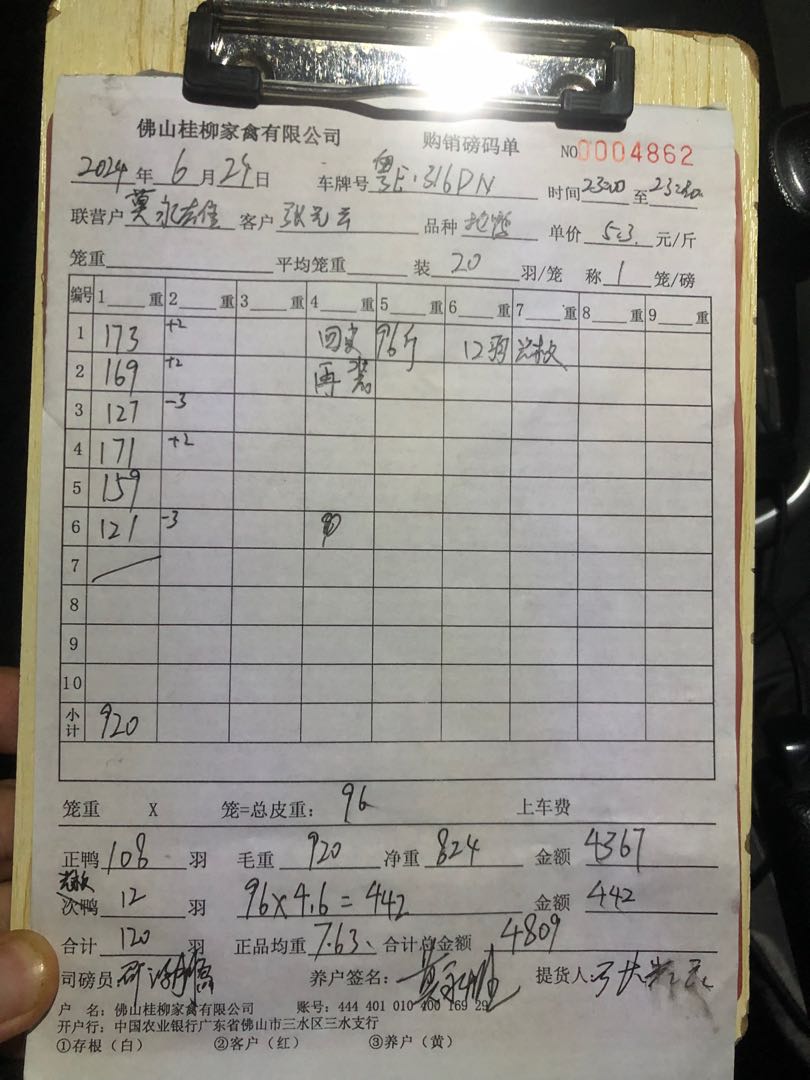 佛山桂柳家禽有限公司 购销磅码单 NO0004862
2024年6月29日 车牌号粤E·316DN 时间2300至2330
联营户莫永雄 客户张元云 品种 单价5.3元/斤
笼重 平均笼重 装20羽/笼 称1笼/磅
编号 1重 2重 3重 4重 5重 6重 7重 8重 9重
1 173 +2 回皮 96斤 12羽
2 169 +2 再装
3 127 -3
4 171 +2
5 159
6 121 -3
7
8
9
10
小计 920
笼重 X 笼=总皮重：96 上车费
正鸭108羽 毛重920净重824 金额4367
次鸭12羽 96×4.6=442 金额442
合计120羽 正品均重7.63 合计总金额4809
司磅员 养户签名： 提货人：
户 名：佛山桂柳家禽有限公司 账号：444 401 010 400 169 29
开户行：中国农业银行广东省佛山市三水区三水支行
①存根（白） ②客户（红） ③养户（黄）